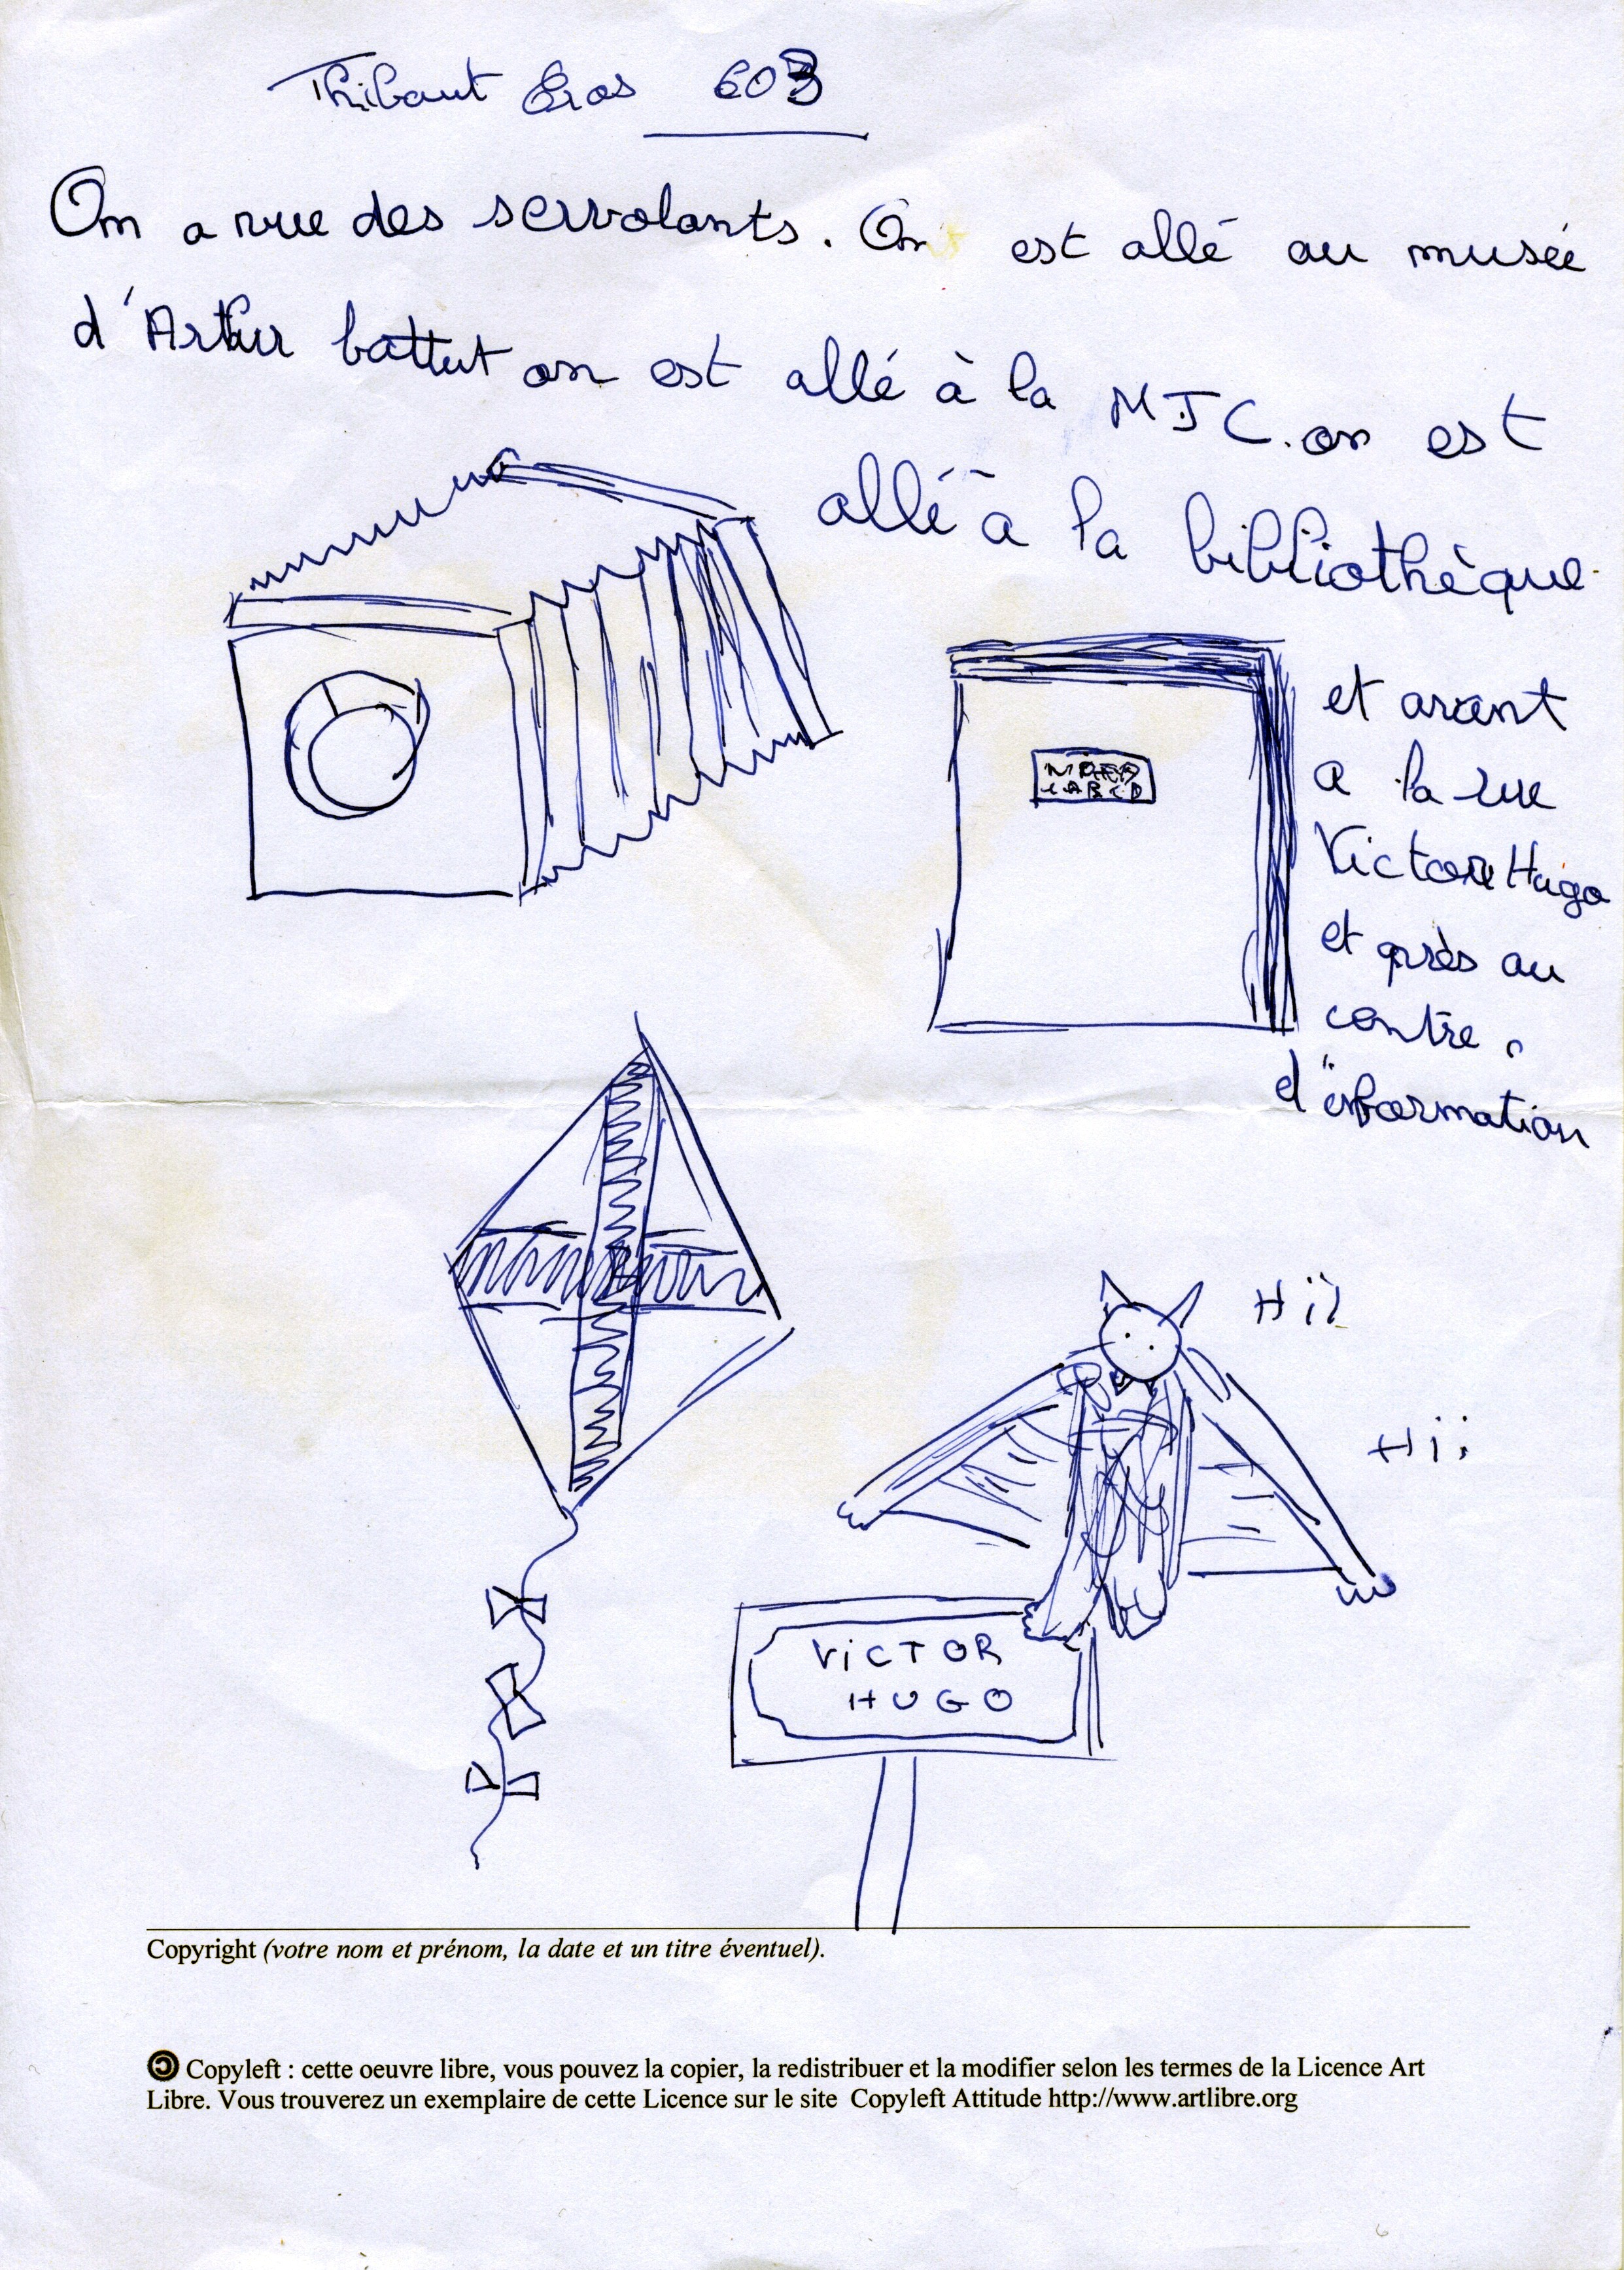 Thibaut Gros 603
On a vue des servolants. On est allé au musée
d'Arthur battut on est allé à la MJC. on est
allé à la bibliothèque.
et avant
a la rue
Victore Hugo
et après au
contre
d'information
Hii
Hii
ViCTOR
HUGO
Copyright (votre nom et prénom, la date et un titre éventuel).
Copyleft : cette oeuvre libre, vous pouvez la copier, la redistribuer et la modifier selon les termes de la Licence Art
Libre. Vous trouverez un exemplaire de cette Licence sur le site Copyleft Attitude http://www.artlibre.org